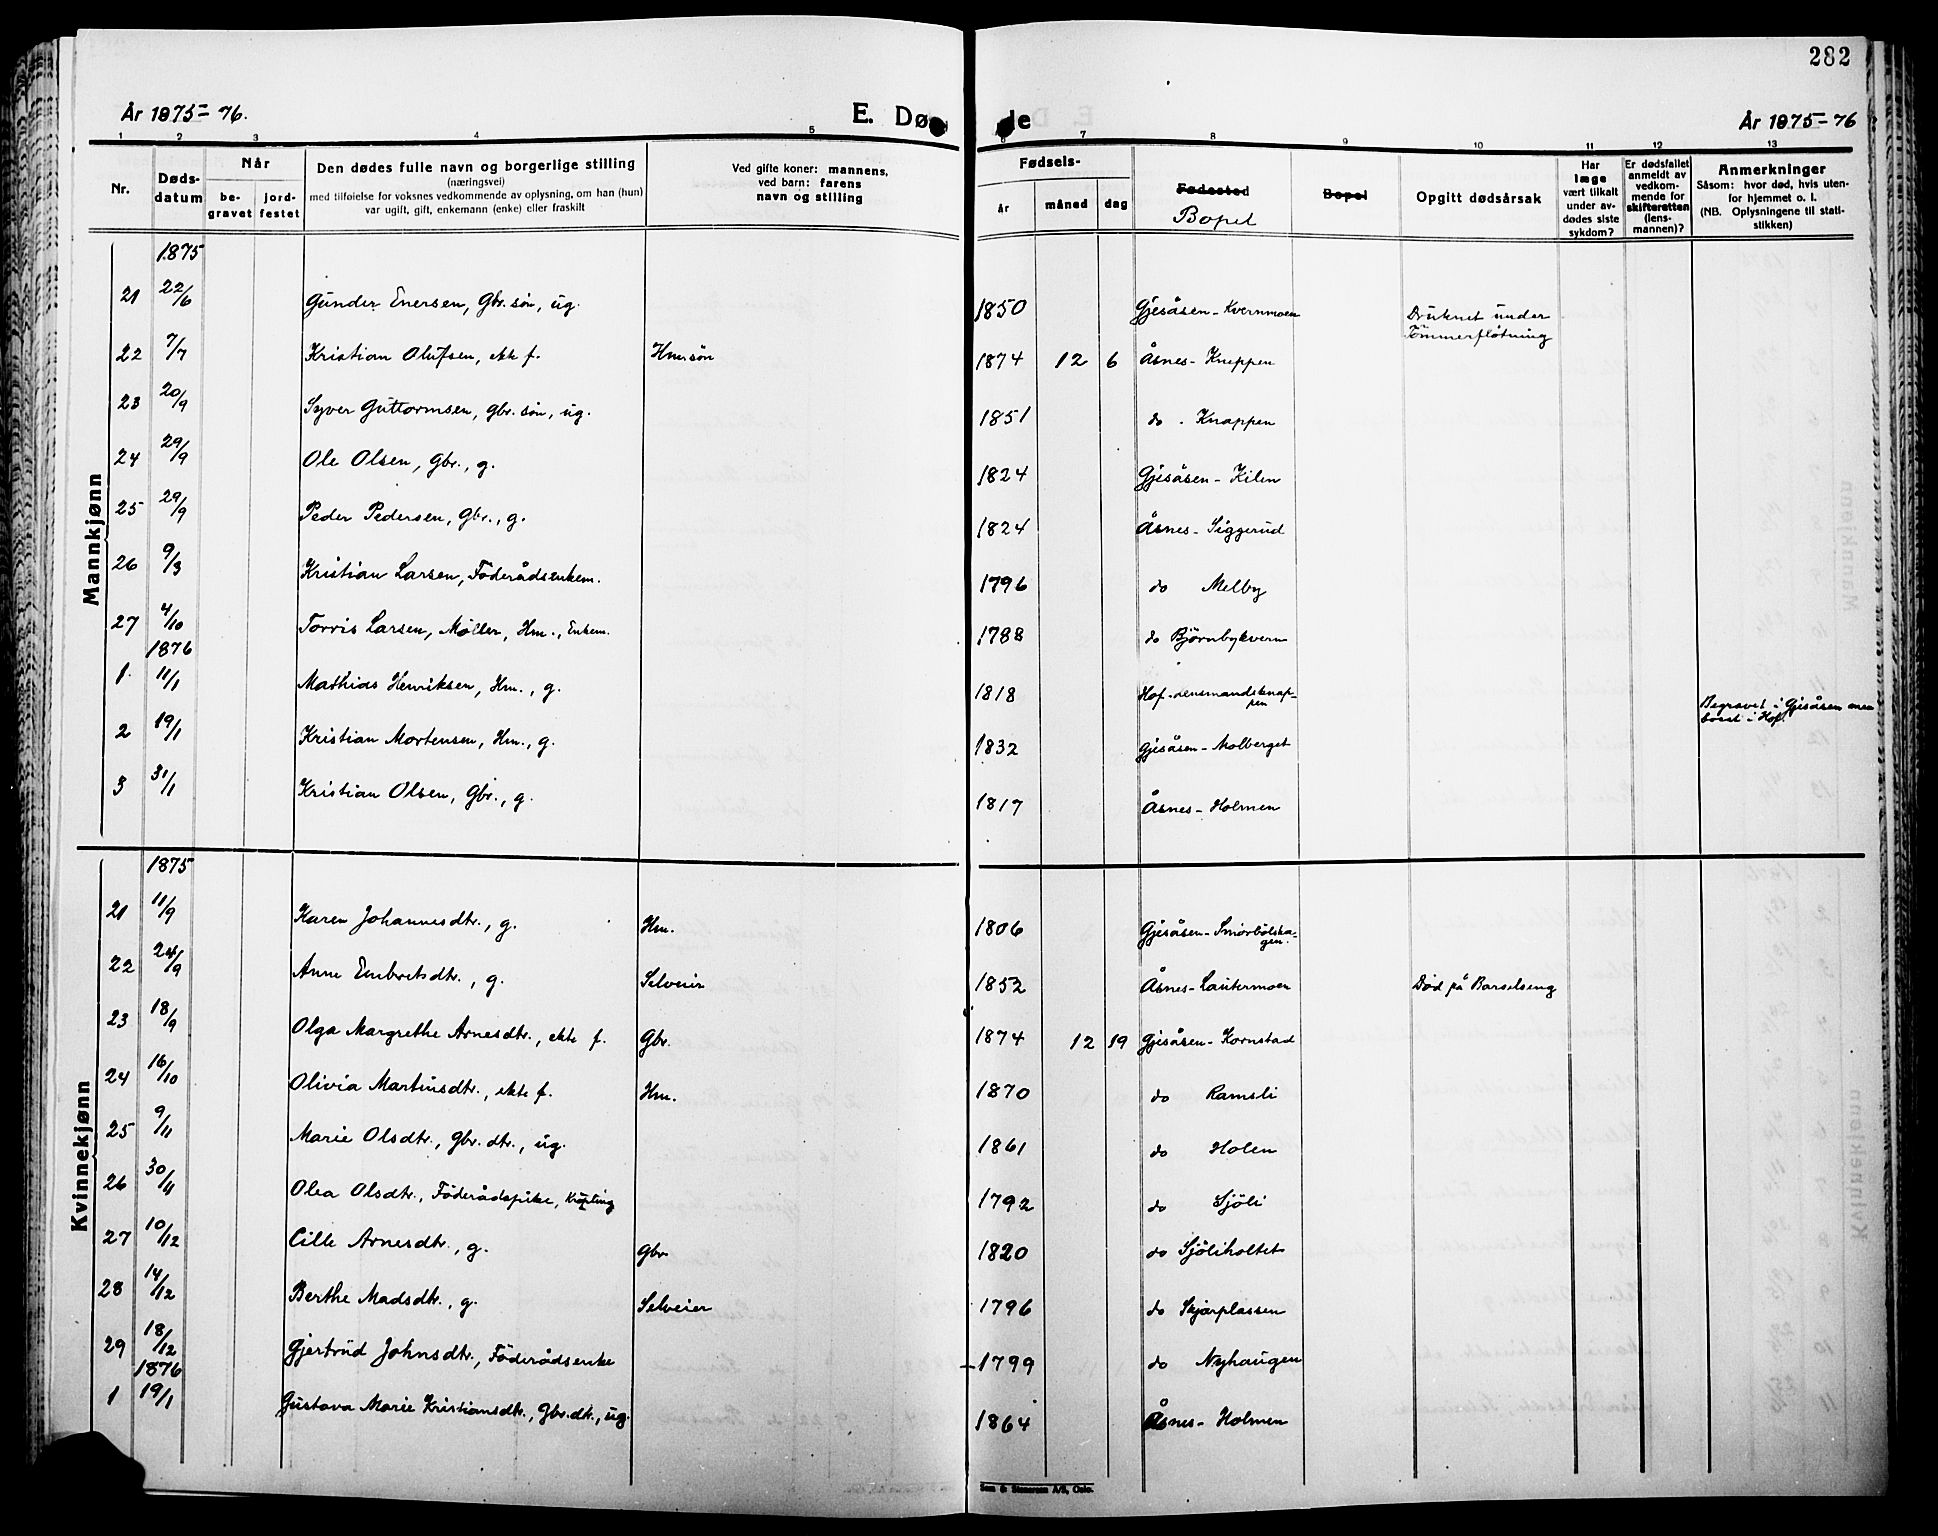 282
År 1875-76.
E. Dø de
År 1875-76
1 2 3 4 5 6 7 8 9 10 11 12 13
Nr.
Døds-
datum
Når
be-
gravet
jord-
festet
Den dødes fulle navn og borgerlige stilling
(næringsvei)
med tilføielse for voksnes vedkommende av oplysning, om han (hun)
var ugift, gift, enkemann (enke) eller fraskilt
Ved gifte koner: mannens,
ved barn: farens
navn og stilling
Fødsels-
år måned dag
Fødested
Bopel
Bopel
Opgitt dødsårsak
Har
læge
vært tilkalt
under av-
dødes siste
sykdom?
Er dødsfallet
anmeldt av
vedkom-
mende for
skifteretten
(lens-
mannen)?
Anmerkninger
Såsom: hvor død, hvis uten-
for hjemmet o. l.
(NB. Oplysningene til stati-
stikken)
Mannkjønn
1875
21 22/6 Gunder Enersen, Gbr. søn, ug. 1850 Gjesåsen - Kvernmoen Druknet under
Tømmerfløtning
22 7/7 Kristian Olufsen, ekte f. Hm. søn 1874 12 6 Åsnes - Knappen
23 20/9 Syver Guttormsen, gbr. søn, ug. 1851 do . Knappen
24 29/9 Ole Olsen, Gbr., g. 1824 Gjesåsen - Kilen
25 29/9 Peder Pedersen, Gbr., g. 1824 Åsnes - Siggerud
26 9/3 Kristian Larsen, Föderådsenkem. 1796 do Melby
27 4/10 Torvis Larsen, Møller, Hm., Enkem. 1788 do Bjørnbykvern
1876
1. 11/1 Mathias Henriksen, Hm., g. 1818 Hof - Lensmandsknap-
pen Begravet i Gjesåsen men
boset i Hof.
2 19/1 Kristian Mortensen, Hm., g. 1832 Gjesåsen - Molberget
3 31/1 Kristian Olsen, Gbr., g. 1817 Åsnes - Holmen
Kvinnekjønn
1875
21 11/9 Karen Johannesdtr., g. Hm. 1806 Gjesåsen - Smörbölsha-
gen.
22 24/9 Anne Embretsdtr., g. Selveier 1852 Åsnes - Lautermoen Död på Barselseng
23 18/9 Olga Margrethe Arnesdtr., ekte f. Gbr. 1874 12 19 Gjesåsen - Kornstad
24 16/10 Olivia Martinsdtr., ekte f. Hm. 1870 do Ramsli
25 9/11 Marie Olsdtr., Gbr. dtr., ug. 1861 do Holen
26 30/11 Olea Olsdtr., Föderådspike, Krøpling 1792 do Sjöli
27 10/12 Cille Arnesdtr., g. Gbr 1820 do Sjöliholtet
28 14/12 Berthe Madsdtr., g. Selveier 1796 do Skjærplassen
29 18/12 Gjertrud Johnsdtr., Föderådsenke 1799 do Nyhaugen
1876
1 19/1 Gustava Marie Kristiansdtr., Gbr. dtr., ug. 1864 Åsnes - Holmen
Sem & Stenersen A/S, Oslo.